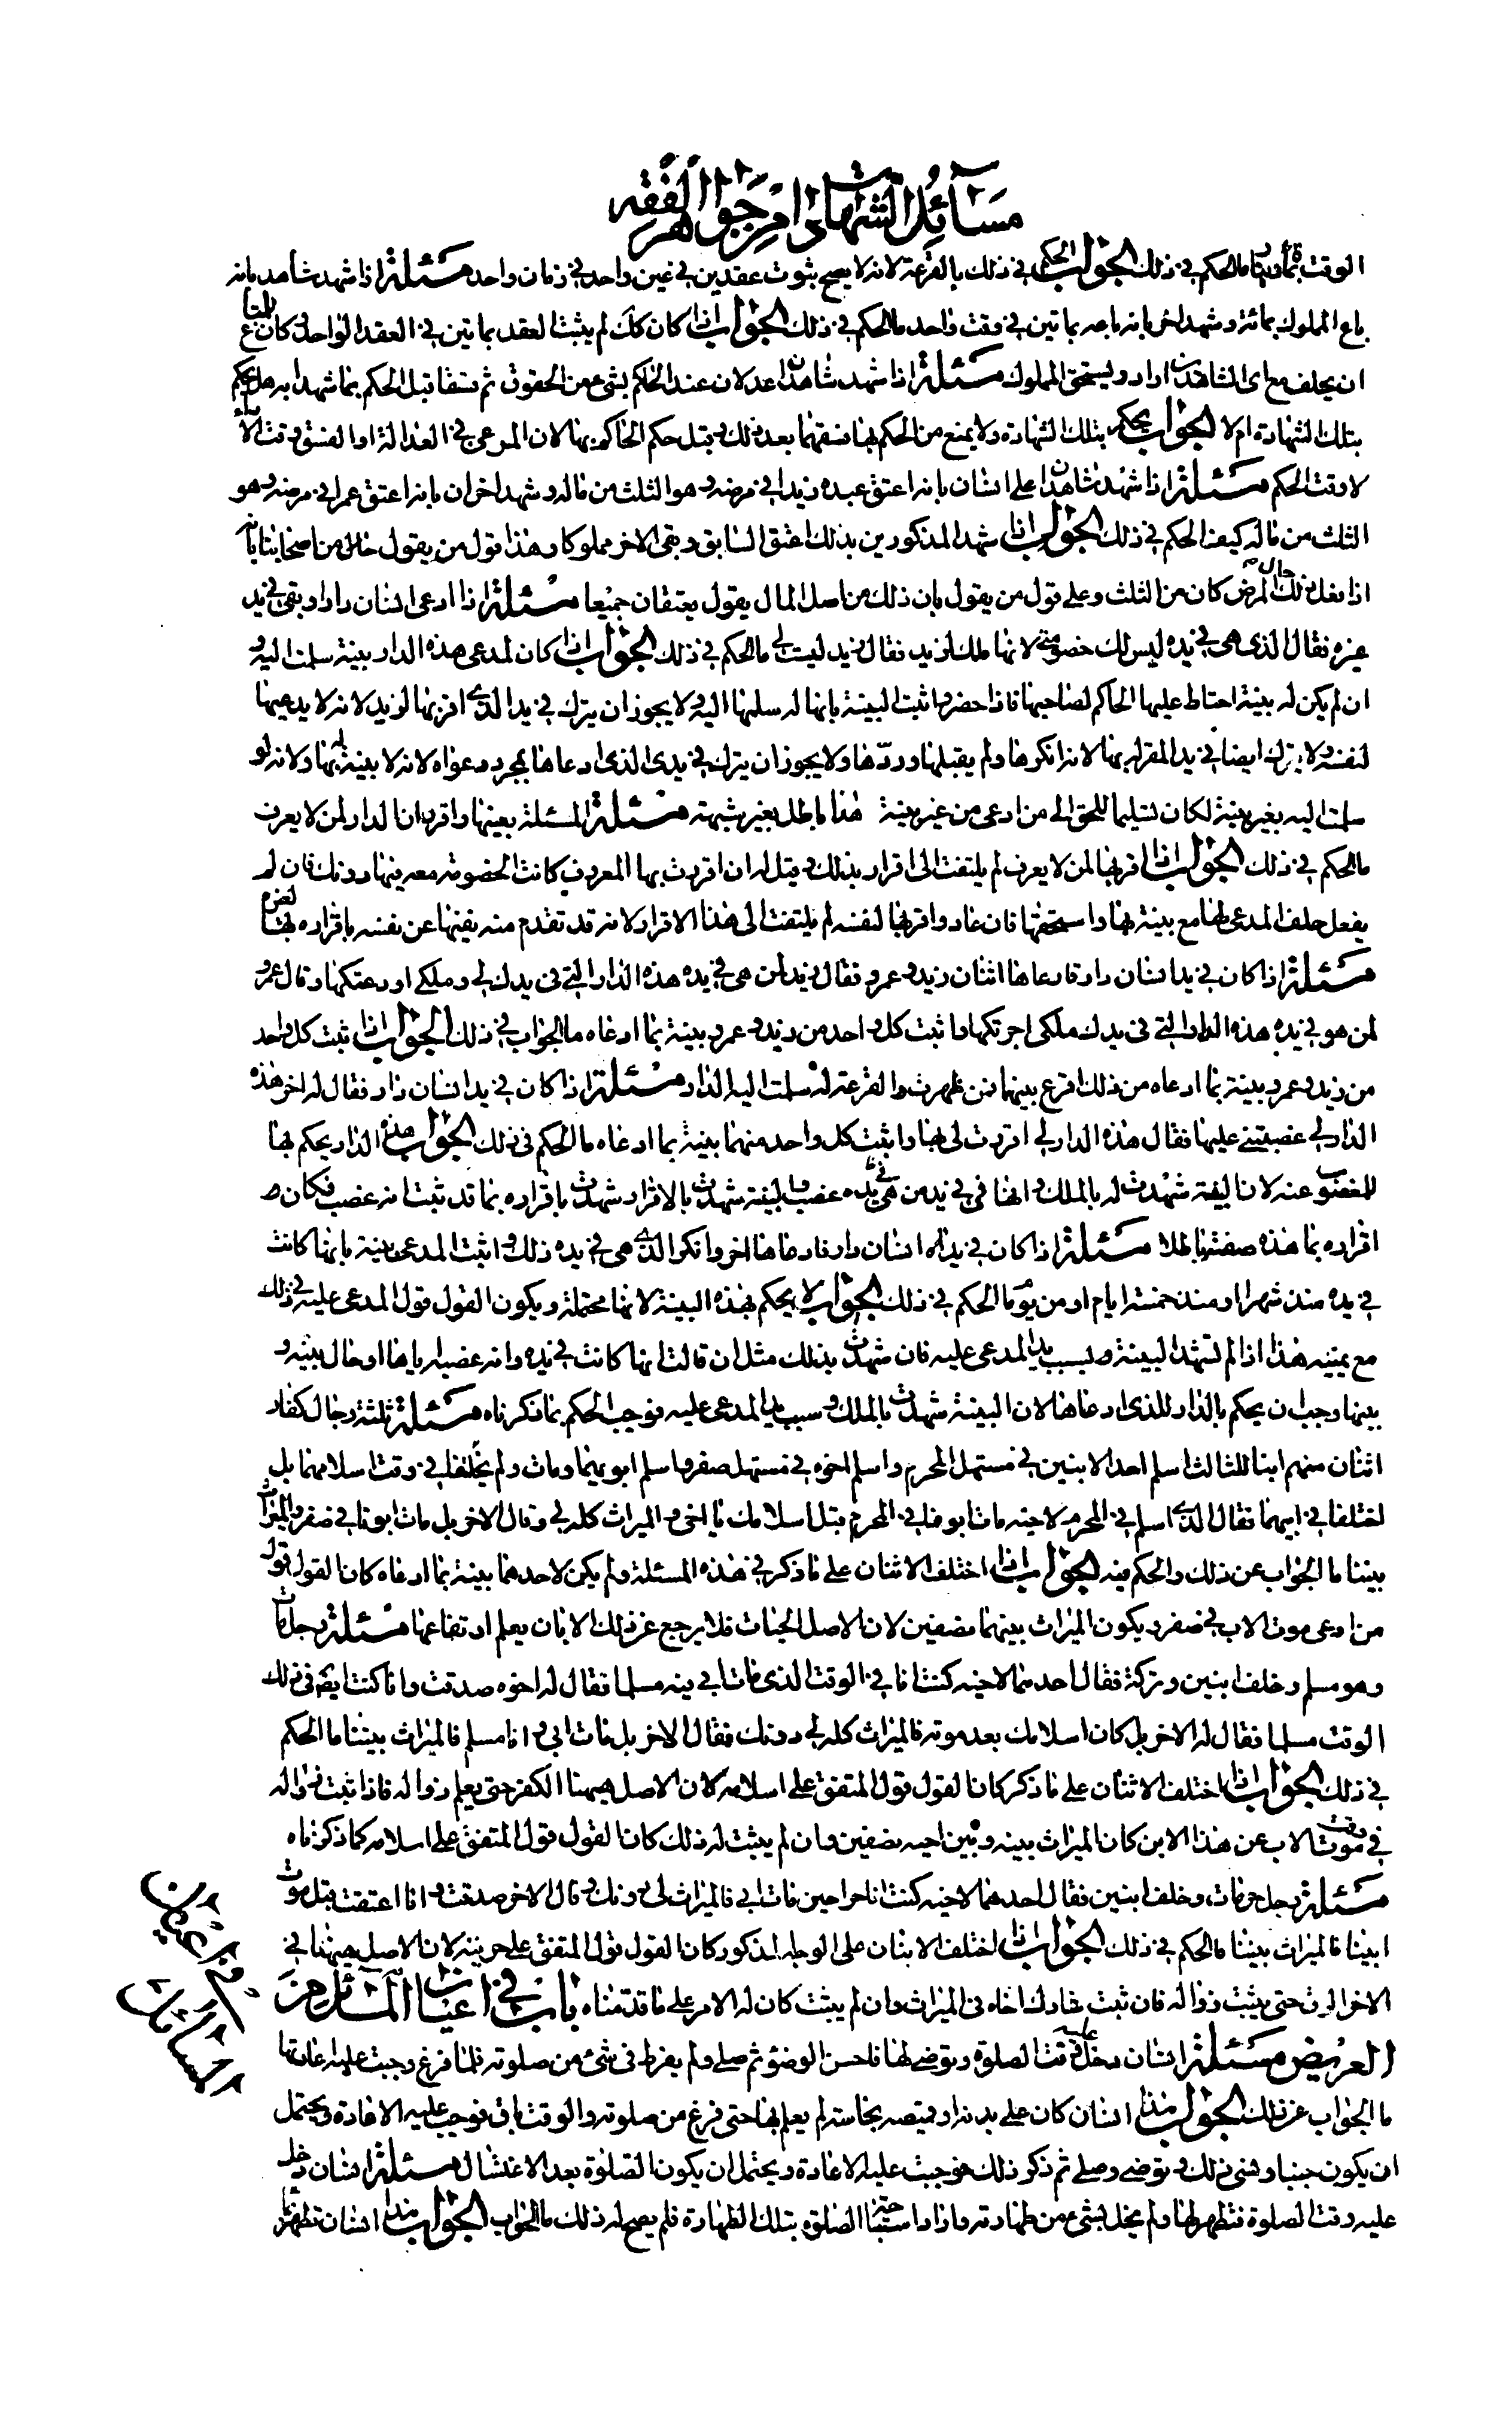 مسائل الشهادات من جواهر الفقه
الوقت بمأتين ما الحكم في ذلك الجواب الحكم في ذلك بالقرعة لانه لا يصح ثبوت عقدين في عين واحد في زمان واحد مسئلة اذا شهد شاهد بانه
باع المملوك بمائة وشهد اخر بانه باعه بماتين في وقت واحد ما الحكم في ذلك الجواب اذا كان كك لم يثبت العقد بماتين في العقد الواحد وكان للمبتاع
ان يحلف مع اى الشاهدين اراد ويستحق المملوك مسئلة اذا شهد شاهدان عدلان عند الحاكم بشئ من الحقوق ثم فسقا قبل الحكم بما شهدا به هل يحكم
بتلك الشهادة ام لا الجواب يحكم بتلك الشهادة ولا يمنع من الحكم بها فسقهما بعد ذلك وقبل حكم الحاكم بها لان المرعى في العدالة او الفسق وقت الاداء
لا وقت الحكم مسئلة اذا شهد شاهدان على انسان بانه اعتق عبده زيدا في مرضه وهو الثلث من ماله وشهد اخران بانه اعتق عمرا في مرضه وهو
الثلث من ماله كيف الحكم في ذلك الجواب اذا شهد المذكورين بذلك اعتق السابق وبقى الاخر مملوكا وهذا قول من يقول من اصحابنا بانه
اذا فعل ذلك حال المرض كان من الثلث وعلى قول من يقول بان ذلك من اصل المال يقول يعتقان جميعا مسئلة اذا ادعى انسان دارا وبقى في يد
غيره فقال الذى هى في يده ليس لك خصومتى لانها ملك لزيد فقال زيد ليست لى ما الحكم في ذلك الجواب اذا كان لمدعى هذه الدار بينة سلمت اليه و
ان لم يكن له بينة احتاط عليها الحاكم لصاحبها فاذا حضر واثبت البينة بانها له سلمها اليه ولا يجوز ان يترك في يد الذى اقر بها لزيد لانه لا يدعيها
لنفسه ولا يترك ايضا في يد المقر له بها لانه انكرها ولم يقبلها وردها ولا يجوز ان يترك في يدى الذى ادعاها بمجرد دعواه لانه لا بينة له بها ولانه لو
سلمت اليه بغير بينة لكان تسليما للحق الى من ادعى من غير بينة هذا باطل بغير شبهة مسئلة المسئلة بعينها واقر بان الدار لمن لا يعرف
ما الحكم في ذلك الجواب اذا اقر بها لمن لا يعرف لم يلتفت الى اقراره بذلك وقيل له ان اقررت بها لمعروف كانت الخصومة معه فيها دونك فان لم
يفعل حلف المدعى لها مع بينة بها واستحقها فان عاد واقر بها لنفسه لم يلتفت الى هذا الاقرار لانه قد تقدم منه نفيها عن نفسه باقراره بها لغيره
مسئلة اذا كان في يد انسان دار فادعاها اثنان زيد وعمرو فقال زيد لمن هى في يده هذه الدار التى في يدك لى وملكى اودعتكها وقال عمرو
لمن هو في يده هذه الدار التى في يدك ملكى اجرتكها واثبت كل واحد من زيد وعمرو بينة بما ادعاه ما الجواب في ذلك الجواب اذا ثبت كل واحد
من زيد وعمرو بينة بما ادعاه من ذلك اقرع بينهما فمن ظهرت القرعة له سلمت اليه الدار مسئلة اذا كان في يد انسان دار فقال له اخر هذه
الدار لى غصبتنى عليها فقال هذه الدار لى اقررت لى بها واثبت كل واحد منهما بينة بما ادعاه ما الحكم في ذلك الجواب هذه الدار يحكم بها
للمغصوب عنه لان البينة شهدت له بالملك وانها في يد من هى في يده غصب والبينة شهدت بالاقرار شهدت باقراره بما قد ثبت انه غصب فكان
اقراره بما هذه صفته باطلا مسئلة اذا كان في يد انسان دار فادعاها اخر وانكر الذى هى في يده ذلك واثبت المدعى بينة بانها كانت
في يده منذ شهر او منذ خمسة ايام او من يوم ما الحكم في ذلك الجواب لا يحكم بهذه البينة لانها محتملة ويكون القول قول المدعى عليه في ذلك
مع يمينه هذا اذا لم تشهد البينة بسبب يد المدعى عليه فان شهدت بذلك مثل ان قالت انها كانت في يده وانه غصبه اياها او حال بينه و
بينها وجب ان يحكم بالدار للذى ادعاها لان البينة شهدت بالملك وسبب يد المدعى عليه فوجب الحكم بما ذكرناه مسئلة ثلثة رجال كفار
اثنان منهم ابنا للثالث اسلم احد الابنين في مستهل المحرم واسلم اخوه في مستهل صفر واسلم ابوهما ومات ولم يختلفا في وقت اسلامهما بل
اختلفا في ابيهما فقال الذى اسلم في المحرم لاخيه مات ابونا في المحرم قبل اسلامك يا اخى والميراث كله لى وقال الاخر بل مات ابونا في صفر والميراث
بيننا ما الجواب عن ذلك والحكم فيه الجواب اذا اختلف الاثنان على ما ذكر في هذه المسئلة ولم يكن لاحدهما بينة بما ادعاه كان القول قول
من ادعى موت الاب في صفر ويكون الميراث بينهما نصفين لان الاصل الحيات فلا يرجع عن ذلك الا بان يعلم ارتفاعها مسئلة رجل مات
وهو مسلم وخلف ابنين وتركة فقال احدهما لاخيه كنت انا في الوقت الذى مات ابى فيه مسلما فقال له اخوه صدقت وانا كنت ايضا في ذلك
الوقت مسلما فقال له الاخر بل كان اسلامك بعد موته فالميراث كله لى دونك فقال الاخر بل مات ابى وانا مسلم فالميراث بيننا ما الحكم
في ذلك الجواب اذا اختلف الاثنان على ما ذكر كان القول قول المتفق على اسلامه لان الاصل هيهنا الكفر حتى يعلم زواله فاذا ثبت زواله
في وقت موت الاب عن هذا الابن كان الميراث بينه وبين اخيه نصفين وان لم يثبت له ذلك كان القول قول المتفق على اسلامه كما ذكرناه
مسئلة رجل حر مات وخلف ابنين فقال احدهما لاخيه كنت انا حرا حين مات ابى فالميراث لى دونك وقال الاخر صدقت وانا اعتقت قبل موت
ابينا فالميراث بيننا ما الحكم في ذلك الجواب اذا اختلف الابنان على الوجه المذكور كان القول قول المتفق على حريته لان الاصل هيهنا في
الاخر الرق حتى يثبت زواله فان ثبت شارك اخاه في الميراث وان لم يثبت كان له الامر على ما قدمناه باب في اعيان المسائل من
العريض مسئلة انسان دخل عليه وقت الصلوة وتوضى لها فاحسن الوضوء ثم صلى ولم يفرط في شئ من صلوته فلما فرغ وجبت عليه اعادتها
ما الجواب عن ذلك الجواب هذا انسان كان على بدنه او قميصه نجاسة لم يعلم بها حتى فرغ من صلوته والوقت باق فوجب عليه الاعادة ويحتمل
ان يكون جنبا ونسى ذلك وتوضى وصلى ثم ذكر ذلك فوجبت عليه الاعادة ويحتمل ان يكون الصلوة بعد الاغتسال مسئلة انسان دخل
عليه وقت الصلوة فتطهر لها ولم يخل بشئ من طهارته واراد استباحة الصلوة بتلك الطهارة فلم يصح له ذلك ما الجواب الجواب هذا انسان تطهر
في اعيان
المسائل